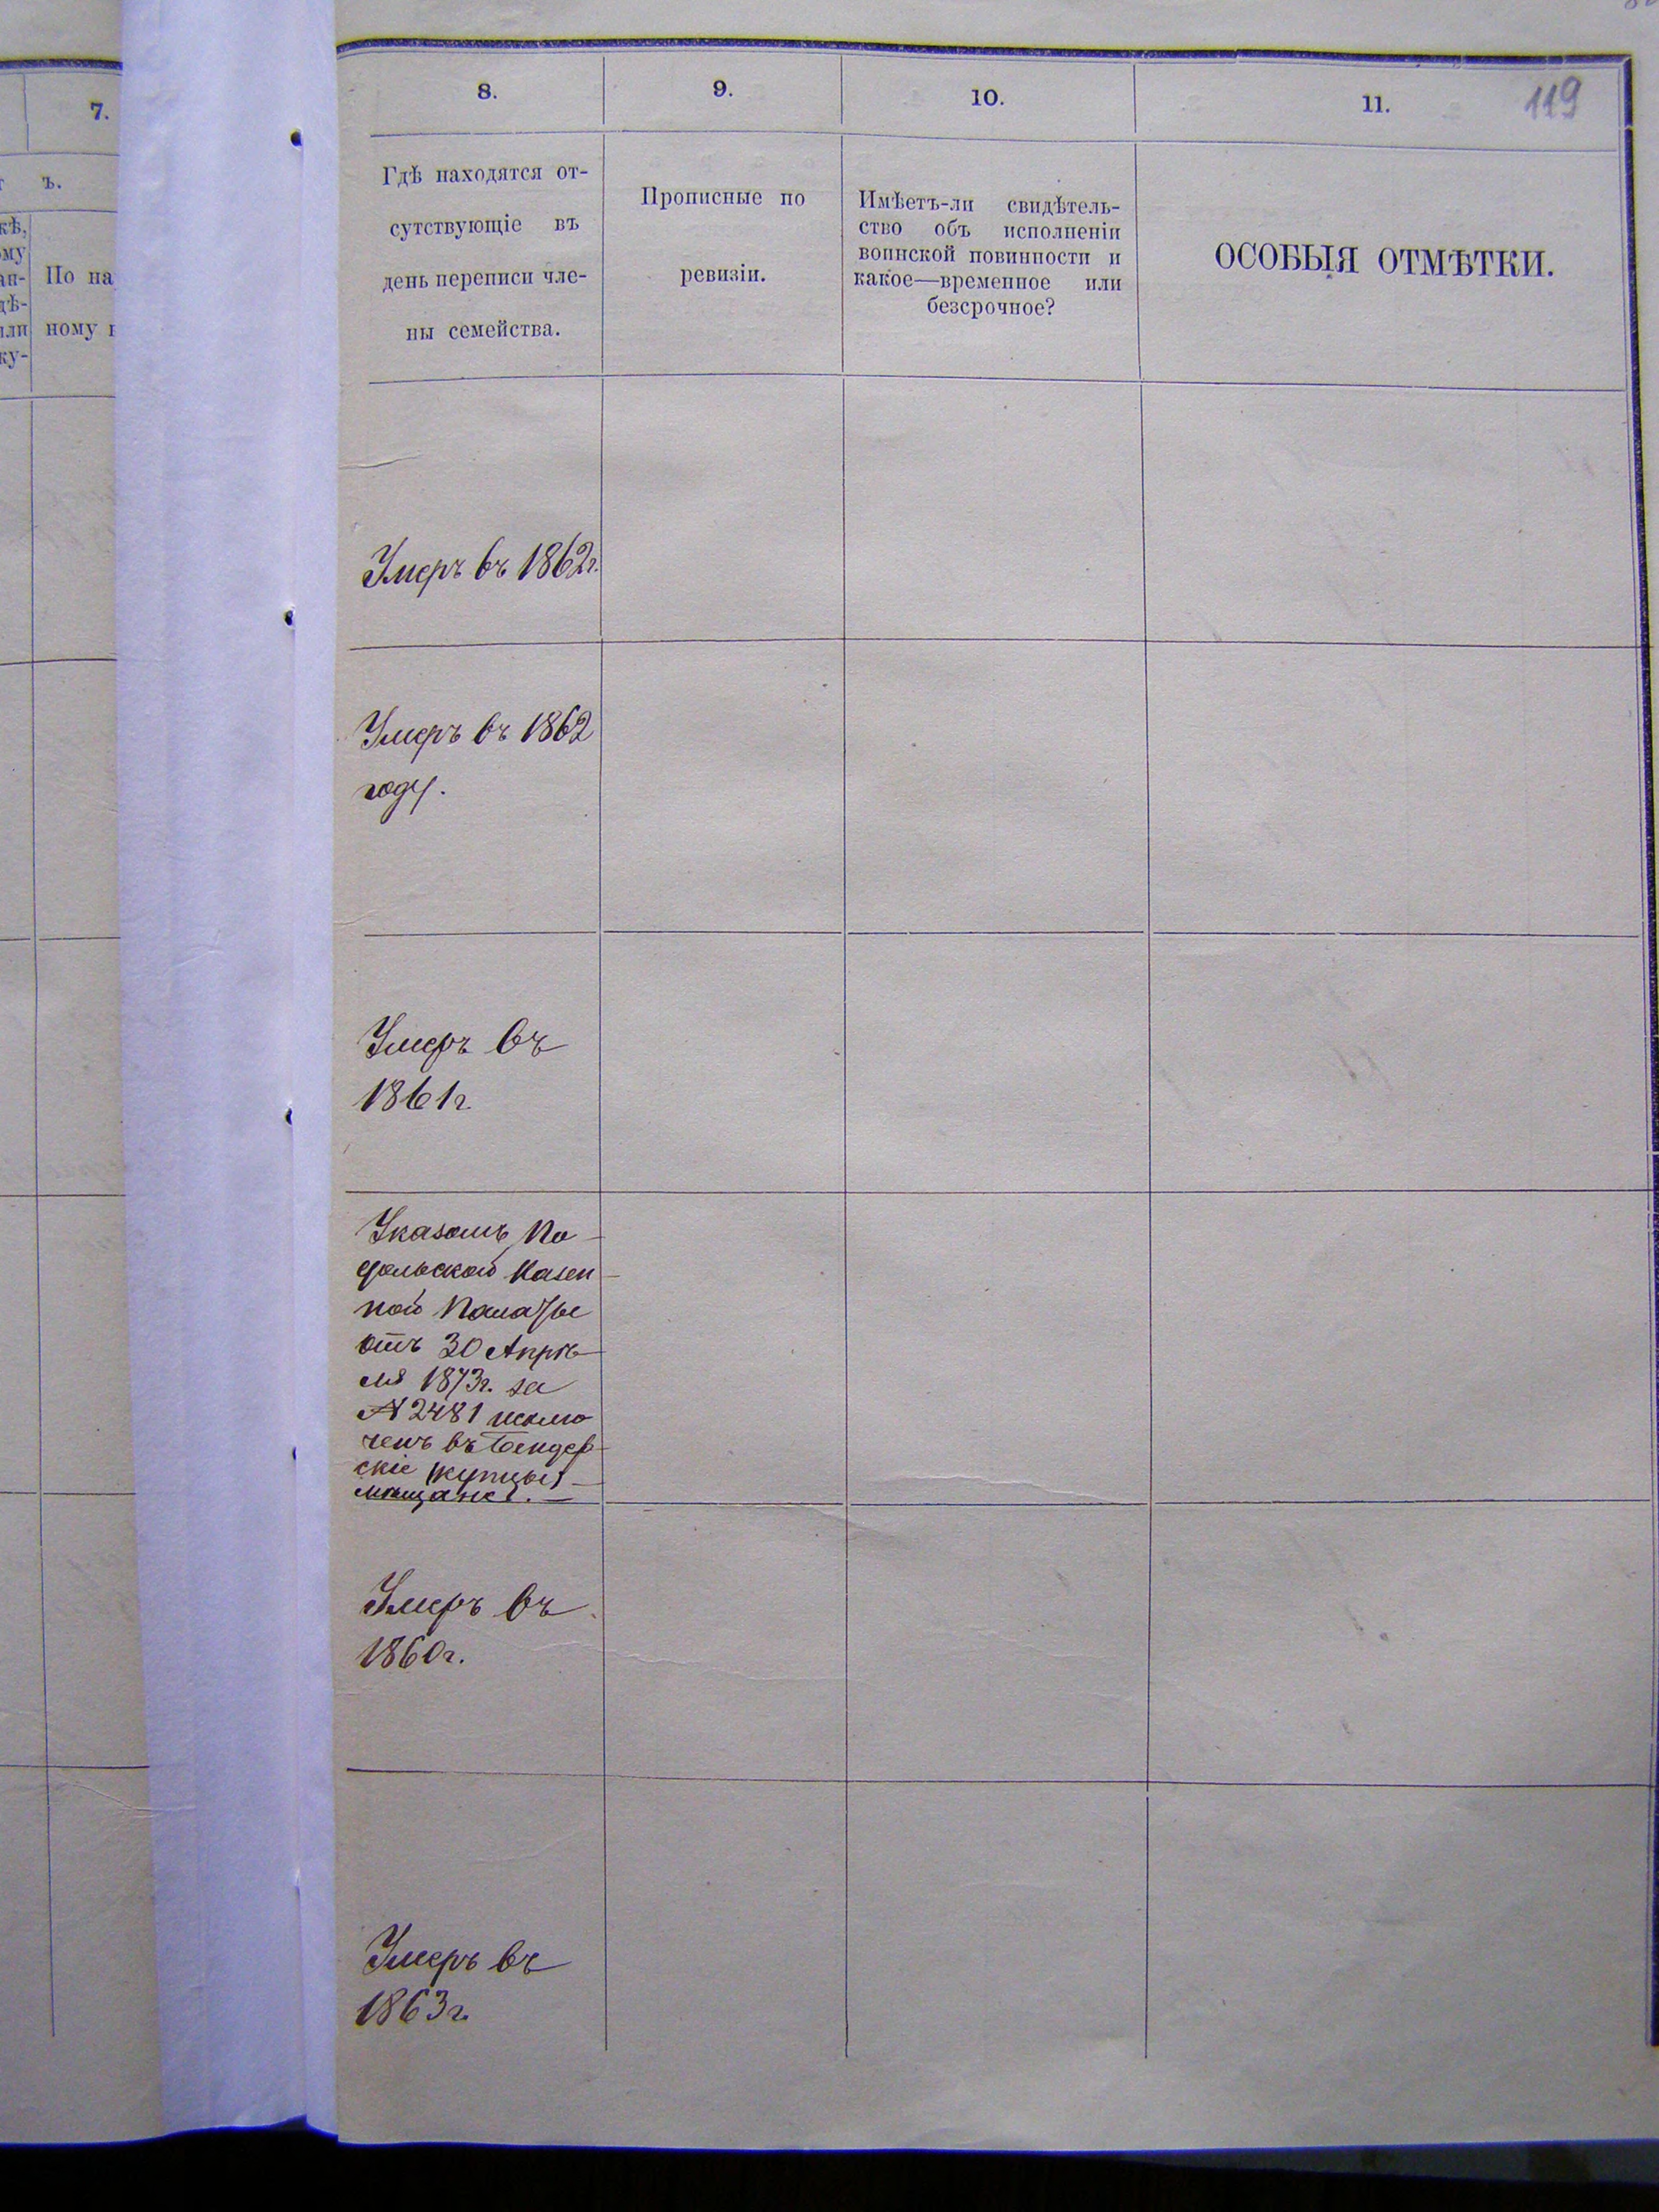 7.
ъ.
кѣ,
ому
ан-
дѣ-
или
ку-
По на
ному
8.
9.
10.
11.
119
Гдѣ находятся от-
сутствующіе въ
день переписи чле-
ны семейства.
Прописные по
ревизіи.
Имѣетъ-ли свидѣтель-
ство объ исполненіи
воинской повинности и
какое—временное или
безсрочное?
ОСОБЫЯ ОТМѢТКИ.
Умеръ въ 1862г.
Умеръ въ 1862
году.
Умеръ въ
1861г
Указомъ По-
дольской Казен-
ной Палаты
отъ 30 Апрѣ-
ля 1873г. за
№ 2481 исклю
ченъ въ Бендер-
скіе (купцы)
мѣщане. —
Умеръ въ
1860г.
Умеръ въ
1863г.